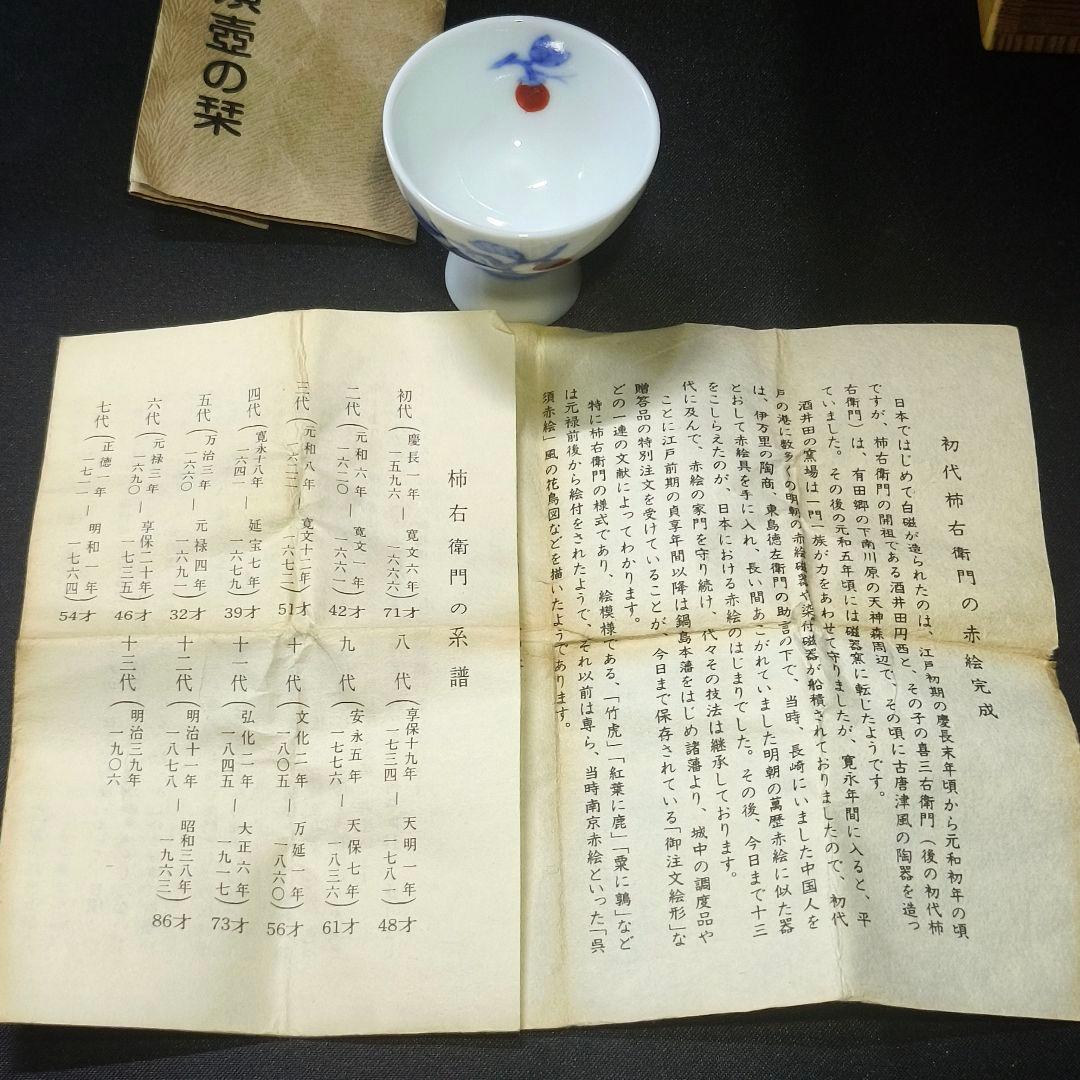 壺の栞
初代柿右衛門の赤絵完成
日本ではじめて白磁が造られたのは、江戸初期の慶長末年頃から元和初年の頃
ですが、柿右衛門の開祖である酒井田円西と、その子の喜三右衛門（後の初代柿
右衛門）は、有田郷の下南川原の天神森周辺で、その頃に古唐津風の陶器を造っ
ていました。その後の元和五年頃には磁器窯に転じたようです。
酒井田の窯場は一門一族が力をあわせて守りましたが、寛永年間に入ると、平
戸の港に数多くの明朝の赤絵磁器や染付磁器が船積されておりましたので、初代
は、伊万里の陶商、東島徳左衛門の助言の下で、当時、長崎にいました中国人を
とおして赤絵具を手に入れ、長い間あこがれていました明朝の萬歴赤絵に似た器
をこしらえたのが、日本における赤絵のはじまりでした。その後、今日まで十三
代に及んで、赤絵の家門を守り続け、代々その技法は継承しております。
ことに江戸前期の貞享年間以降は鍋島本藩をはじめ諸藩より、城中の調度品や
贈答品の特別注文を受けていることが、今日まで保存されている「御注文絵形」な
どの一連の文献によってわかります。
特に柿右衛門の様式であり、絵模様である、「竹虎」「紅葉に鹿」「粟に鶉」など
は元禄前後から絵付をされたようで、それ以前は専ら、当時南京赤絵といった「呉
須赤絵」風の花鳥図などを描いたようであります。
柿右衛門の系譜
初代（慶長一年 一五九六 ― 寛文六年 一六六六）71才
二代（元和六年 一六二〇 ― 寛文一年 一六六一）42才
三代（元和八年 一六二二 ― 寛文十二年 一六七二）51才
四代（寛永十八年 一六四一 ― 延宝七年 一六七九）39才
五代（万治三年 一六六〇 ― 元禄四年 一六九一）32才
六代（元禄三年 一六九〇 ― 享保二十年 一七三五）46才
七代（正徳一年 一七一一 ― 明和一年 一七六四）54才
八代（享保十九年 一七三四 ― 天明一年 一七八一）48才
九代（安永五年 一七七六 ― 天保七年 一八三六）61才
十代（文化二年 一八〇五 ― 万延一年 一八六〇）56才
十一代（弘化二年 一八四五 ― 大正六年 一九一七）73才
十二代（明治十一年 一八七八 ― 昭和三八年 一九六三）86才
十三代（明治三九年 一九〇六